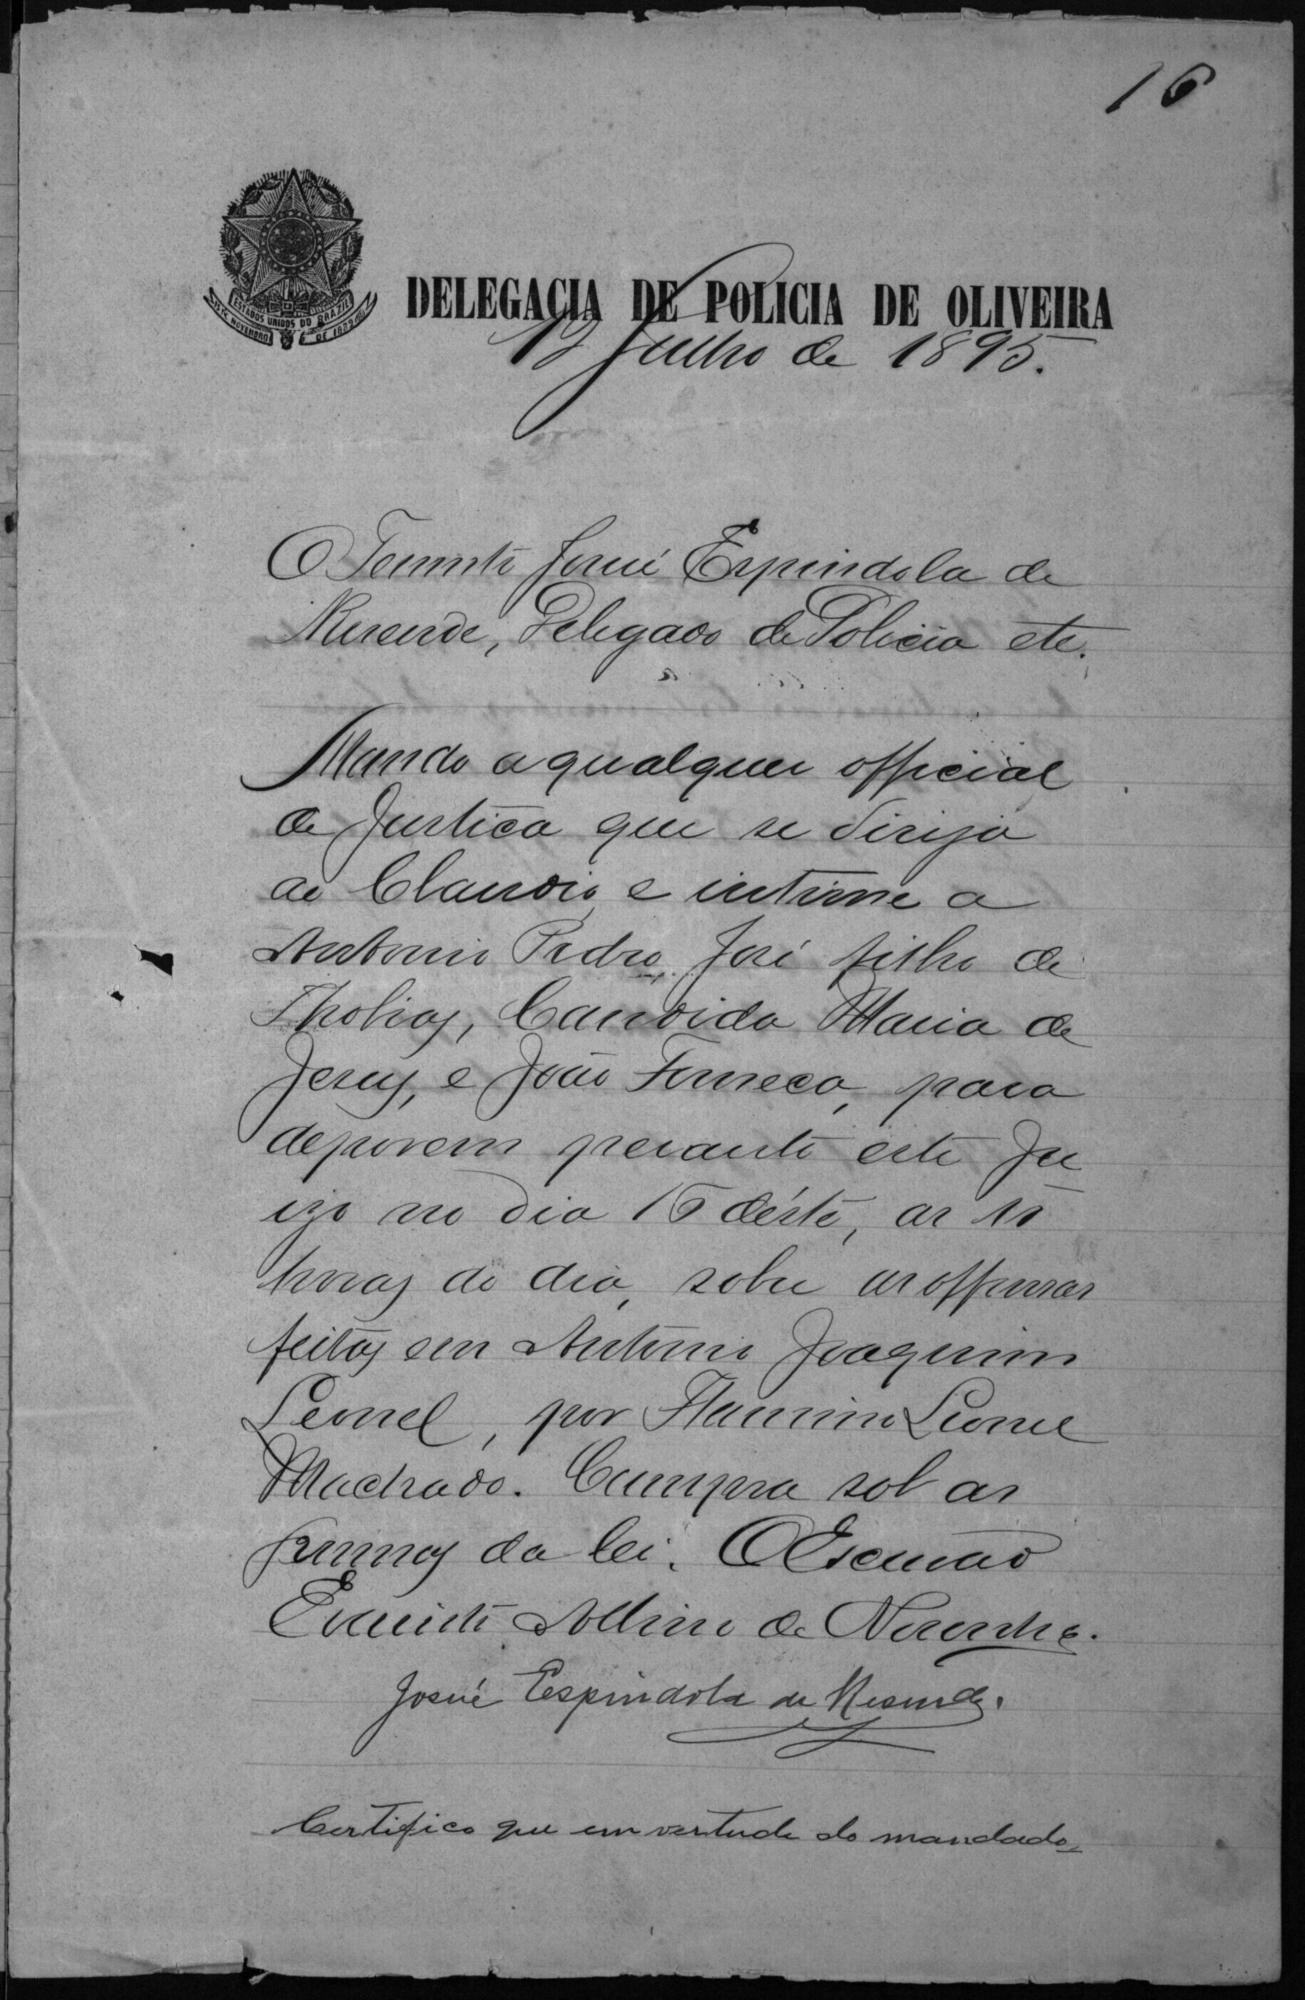 16
ESTADOS UNIDOS DO BRAZIL
15 DE NOVEMBRO DE 1889
DELEGACIA DE POLICIA DE OLIVEIRA
12 Julho de 1895.
O Tenente Josué Espindola de
Resende, Delegado de Policia etc.
Mando a qualquer official
de Justiça que se dirija
ao Claudio e intime a
Antonio Pedro, José filho de
Thobias, Candida Maria de
Jesus, e João Fonseca, para
deporem perante este Ju
izo no dia 15 déste, as 10
horas do dia, sobre as offensas
feitas em Antonio Joaquim
Leonel, por Flaurino Leonel
Machado. Cumpra sob as
pennas da lei. O Escrivão
Evaristo Albino de Noronha.
Josué Espindola de Resende.
Certifico que em vertude do mandado